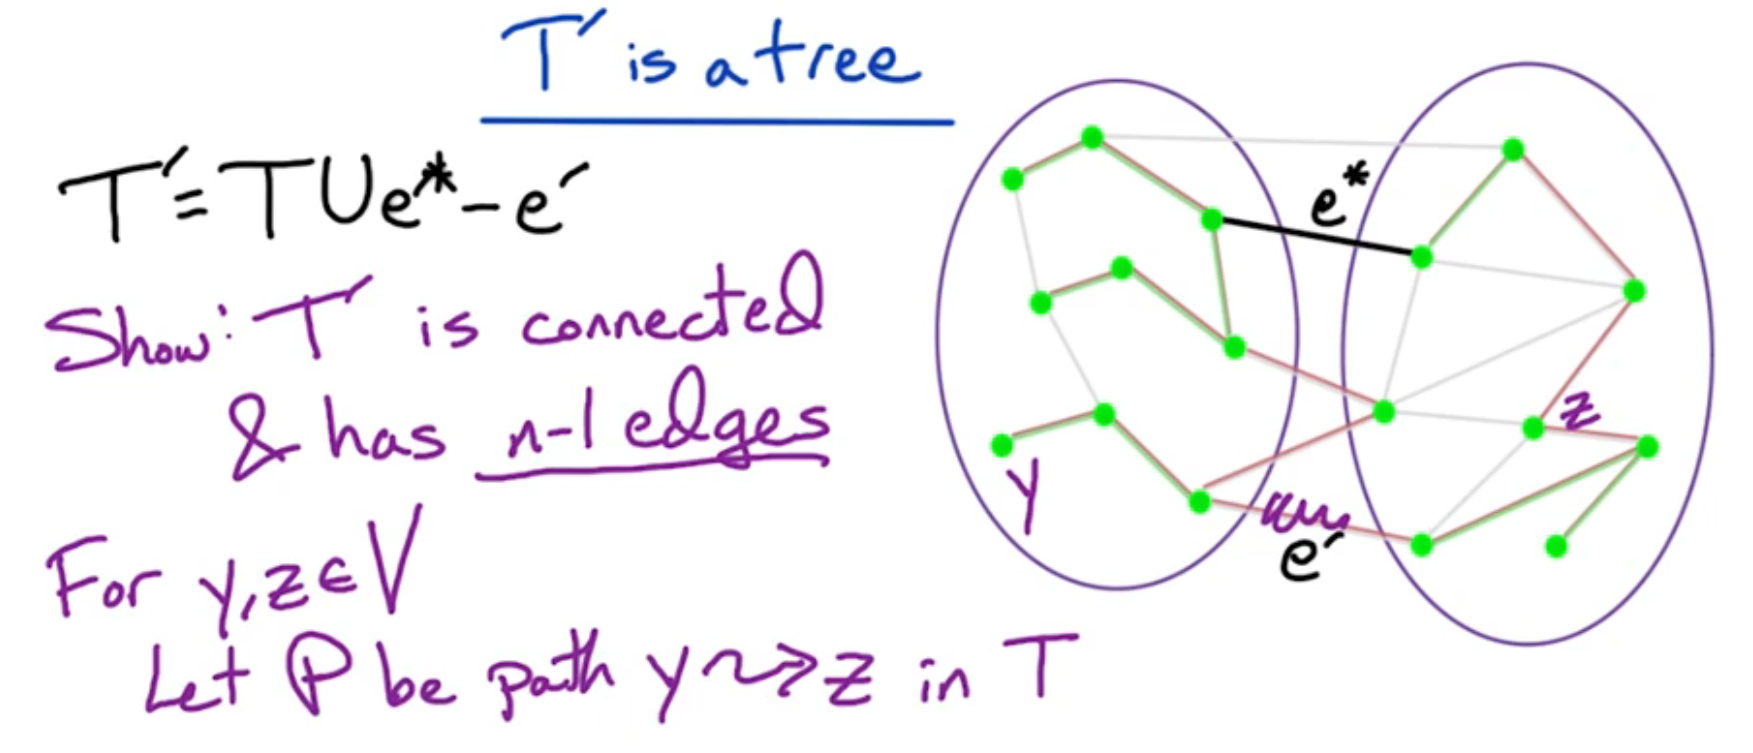 T' is a tree
T' = T ∪ e* - e'
Show: T' is connected
& has n-1 edges
For y, z ∈ V
Let P be path y ⇝ z in T
e*
z
y
e'